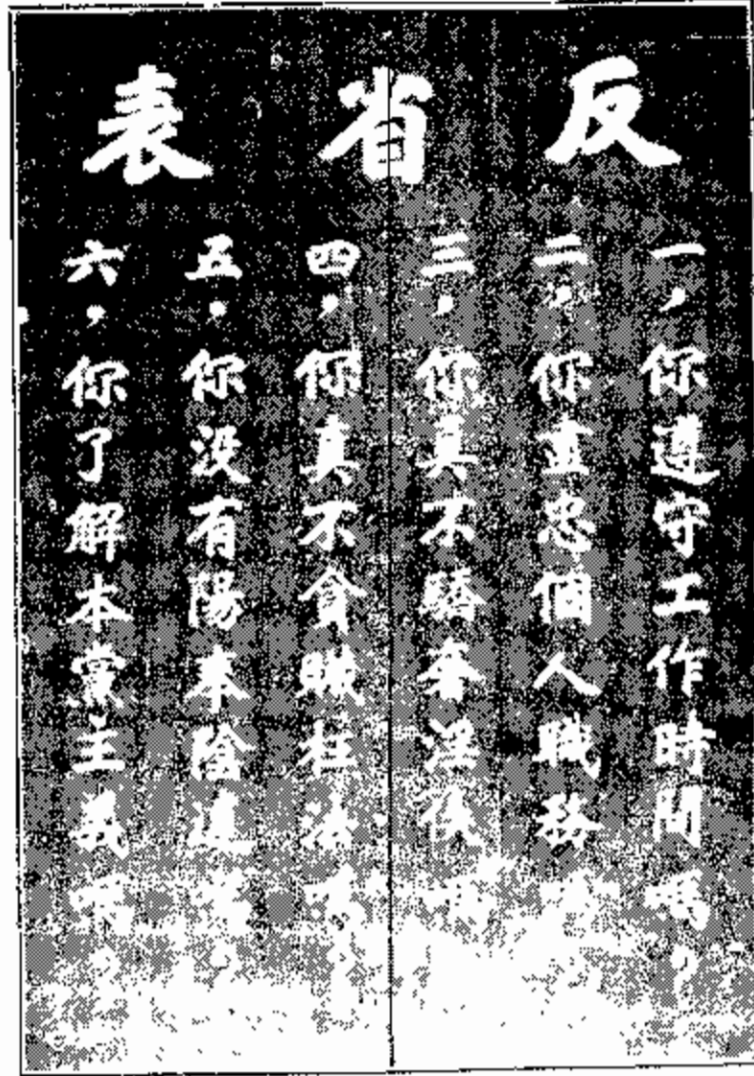 反省表
一，你遵守工作時間嗎，
二，你直忠個人職務
三，你真不驕奢淫佚
四，你真不貪贓枉法嗎
五，你没有陽奉陰違
六，你了解本黨主義嗎